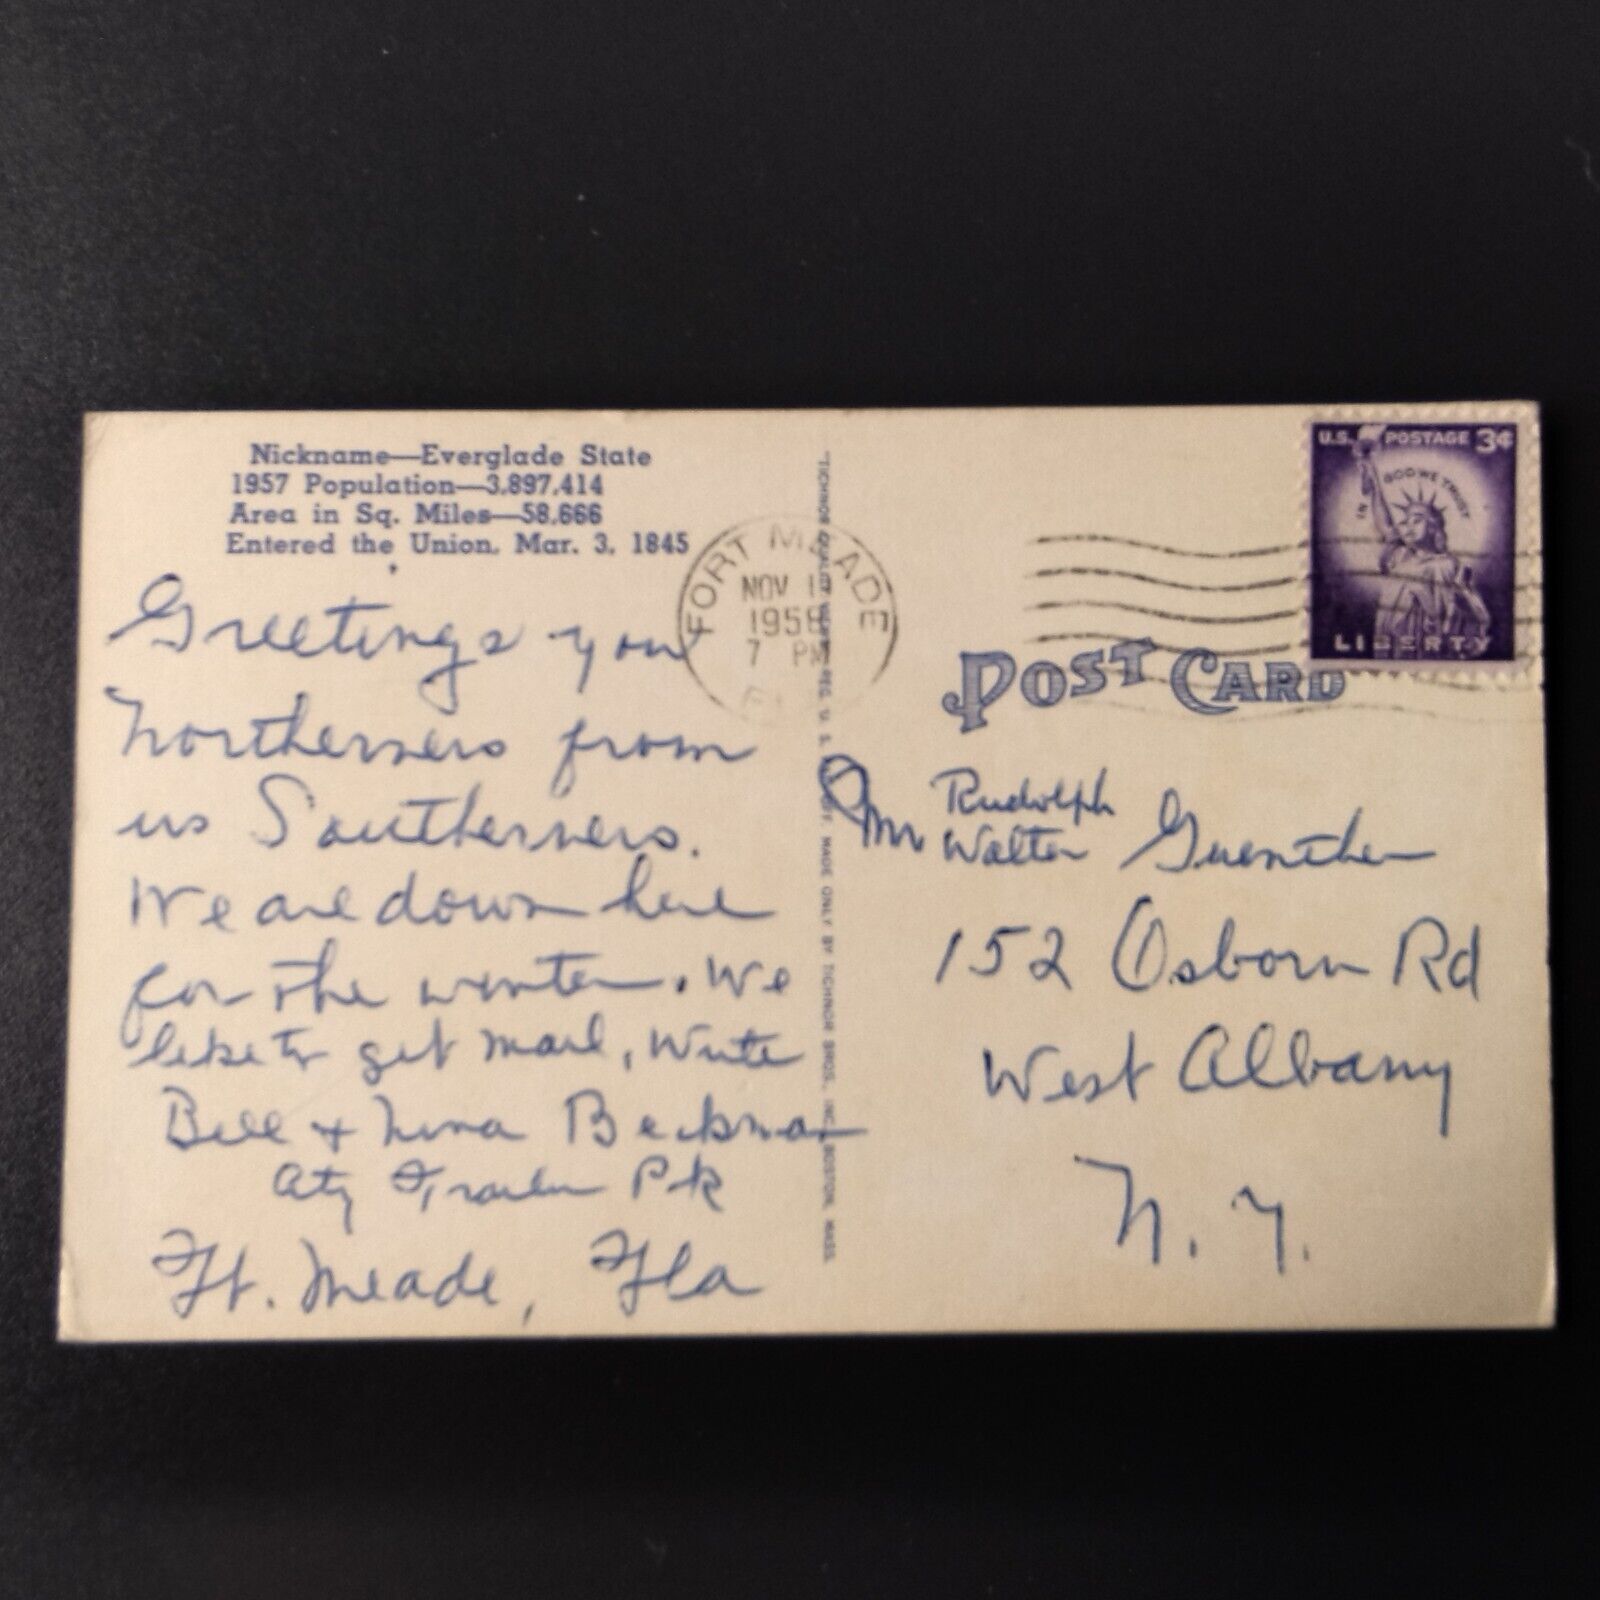 Nickname—Everglade State
1957 Population—3,897,414
Area in Sq. Miles—58,666
Entered the Union, Mar. 3, 1845
Greetings you
Northerners from
us Southerners.
We are down here
for the winter. We
like to get mail, Write
Bill & Nina Beckman
City Trailer Pk
Ft. Meade, Fla
FORT MEADE
NOV 1
1958
7 PM
"TICHNOR QUALITY VIEWS," REG. U. S. MADE ONLY BY TICHNOR BROS., INC., BOSTON, MASS.
U.S. POSTAGE 3¢
IN GOD WE TRUST
LIBERTY
POST CARD
Rudolph
Mr Walter Guenther
152 Osborn Rd
West Albany
N. Y.